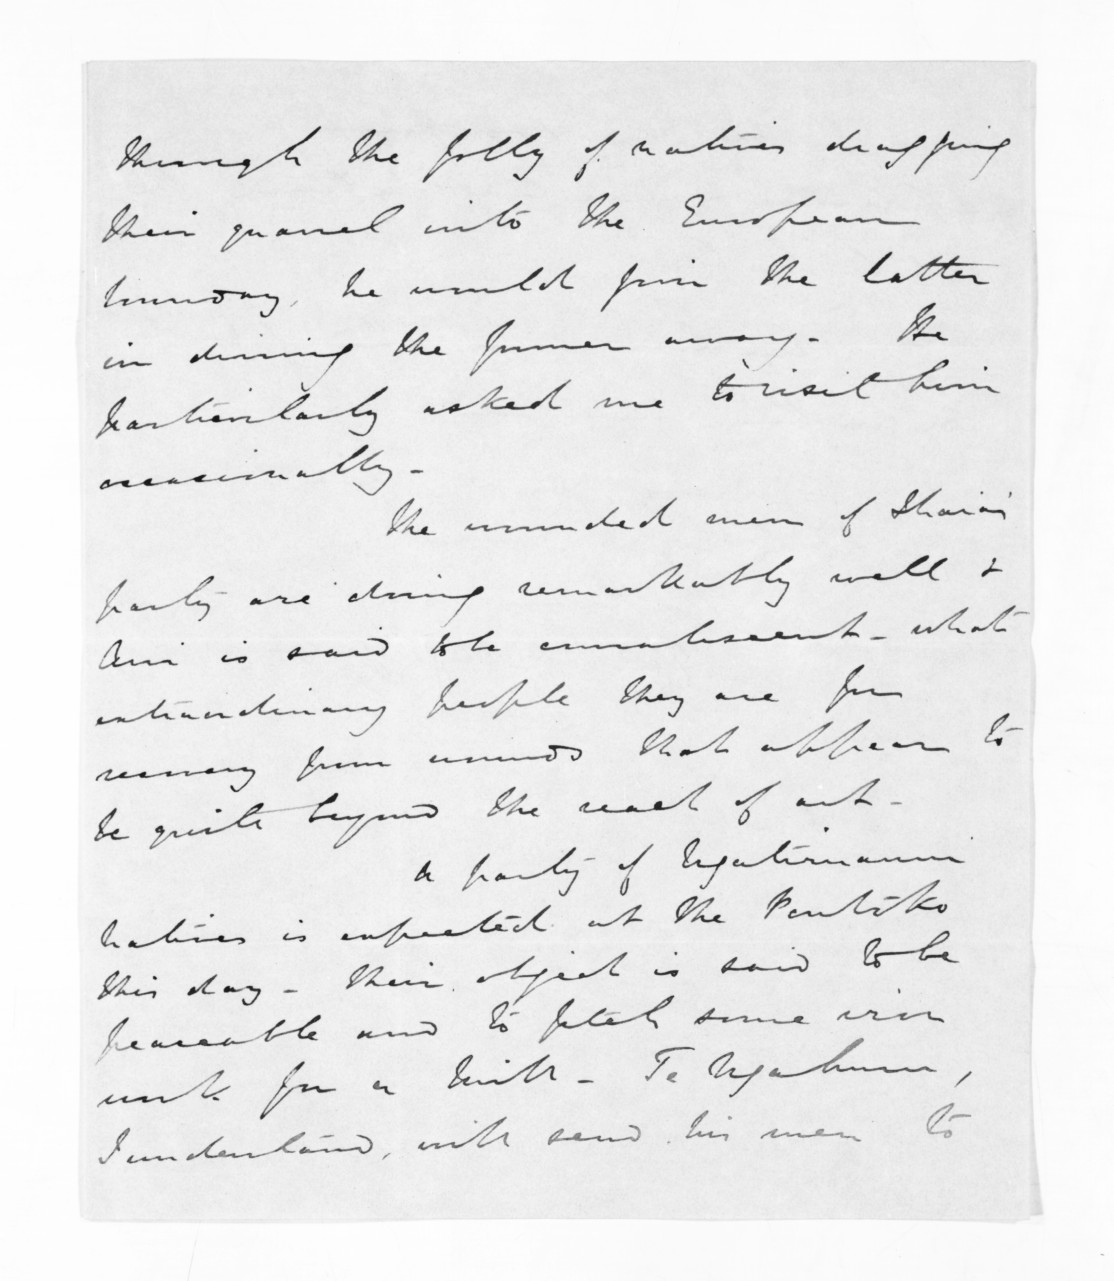 through the folly of natives dragging
their quarrel into the European
boundary, he would join the latter
in driving the former away. He
particularly asked me to visit him
occasionally.
The wounded men of Ihaia's
party are doing remarkably well &
is said to be convalescent - what
extraordinary people they are for
recovery from wounds that appear to
be quite beyond the reach of art.
A party of Ngatimaru
natives is expected at the
this day - their object is said to be
peaceable and to fetch some iron
work for a Mill - Te Ngahuru,
I understand, will send his men to